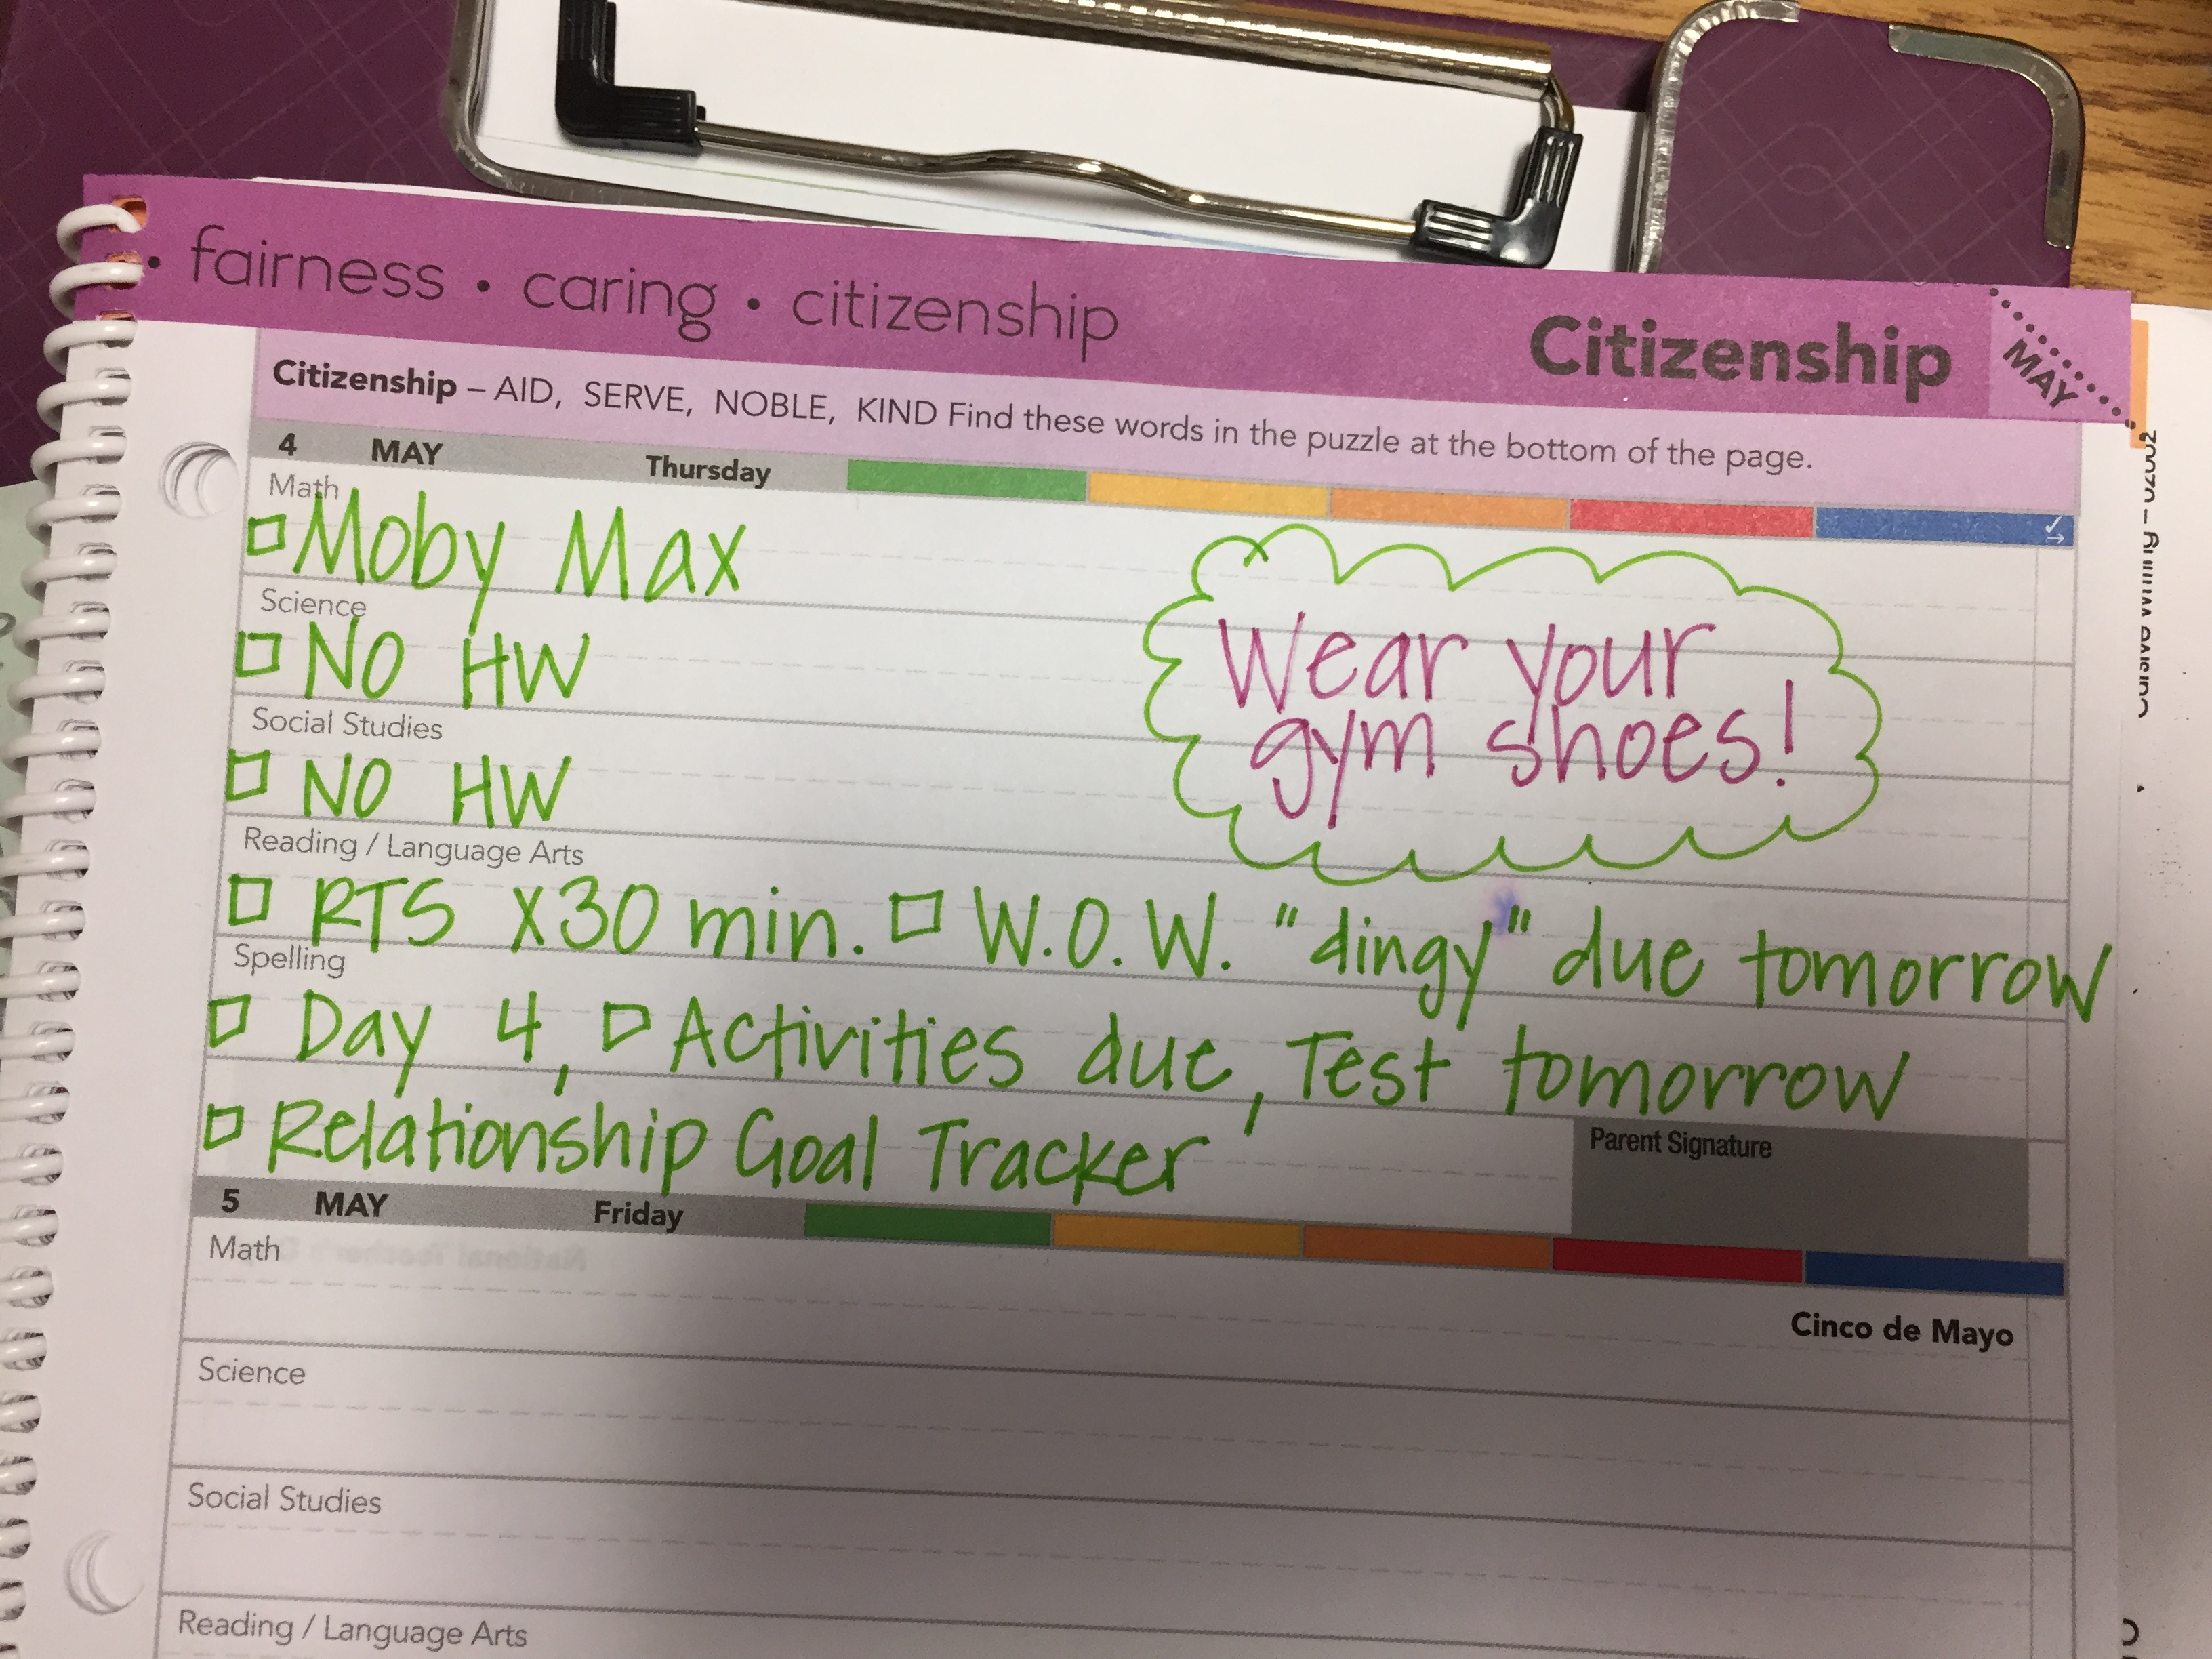 • fairness • caring • citizenship
Citizenship
MAY
Citizenship – AID, SERVE, NOBLE, KIND Find these words in the puzzle at the bottom of the page.
4 MAY Thursday
Math
Moby Max
Science
NO HW
Wear your
gym shoes!
Social Studies
NO HW
Reading / Language Arts
RTS X30 min. W.O.W. "dingy" due tomorrow
Spelling
Day 4, Activities due, Test tomorrow
Relationship Goal Tracker
Parent Signature
5 MAY Friday
Math
Cinco de Mayo
Science
Social Studies
Reading / Language Arts